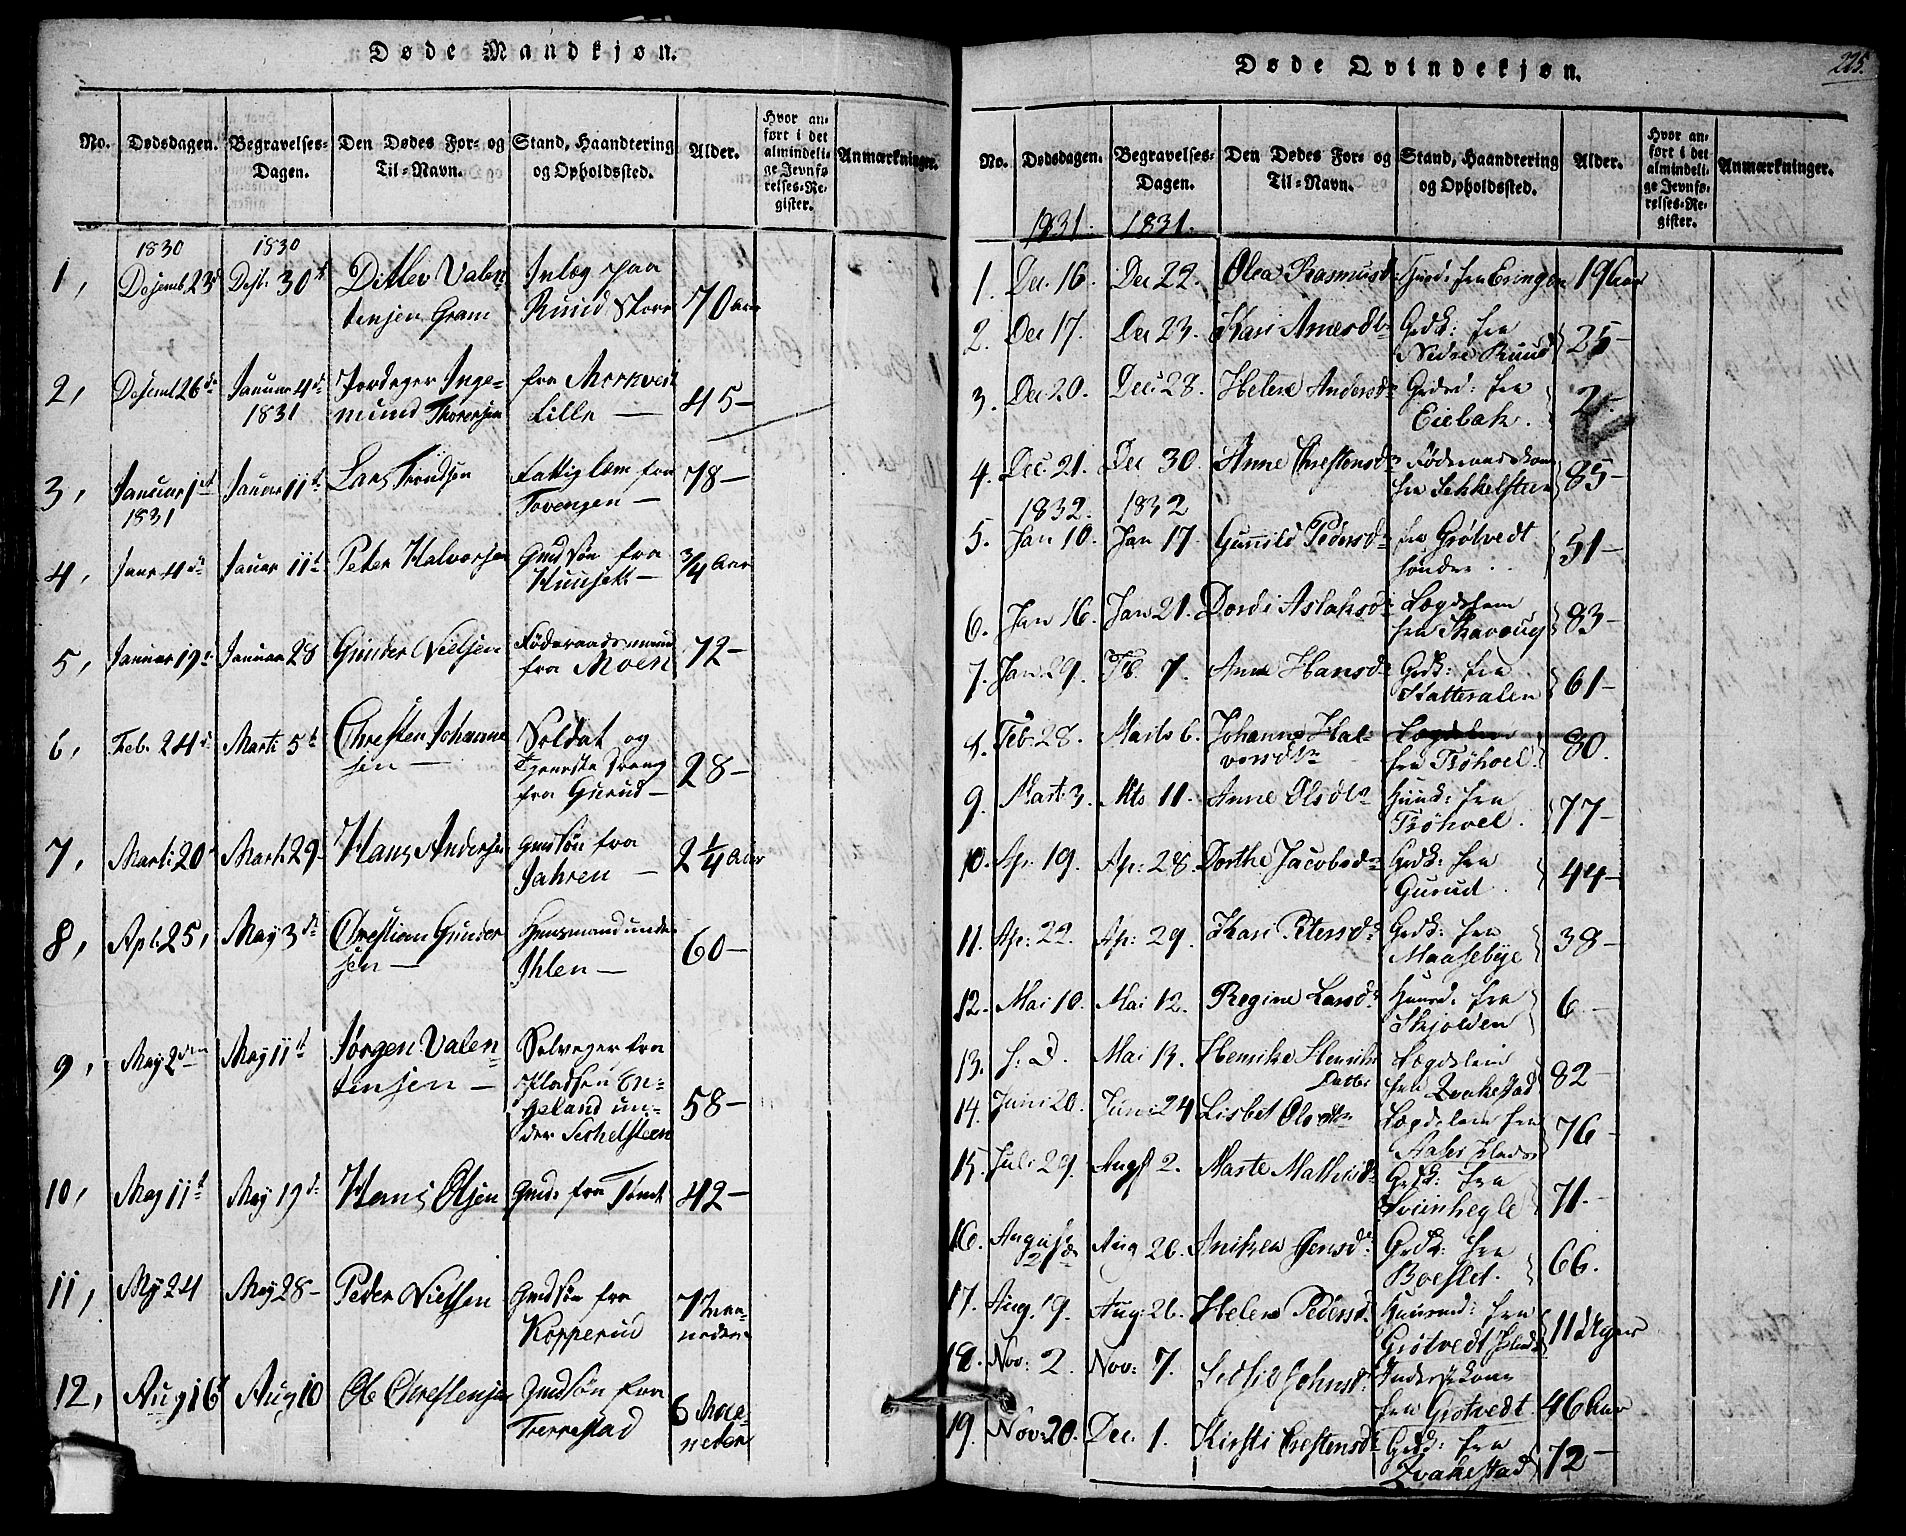 Døde Mandkjøn.
No. Dødsdagen. Begravelses-Dagen. Den Dødes For- og Til-Navn. Stand, Haandtering og Opholdssted. Alder. Hvor anført i det almindelige Jevnførelses-Register. Anmærkninger.
1830 1830
1, Desemb 23d 30t Ditlev Valen
tensen Gram Inlæg paa Ruud Store 70 Aar
2, 26de Januar 4de 1831 Inge-
mund Thoresen fra Morkved Lille — 45 —
3, Januar 1st 1831 Januar 11t Lars Trudsen Fattiglem fra
Tovengen — 78 —
4, Januar 11t Peter Halvorsen Gmdsøn fra
3/4 Aar
5, Januar 19 Januar 28 Gunder Nielsen Føderaadsmand
fra Moen 72 —
6, Feb. 24d Marti 5t Chresten Johanne
sen — Soldat og
Tjeneste Dreng
fra Gurud — 28 —
7, Marti 20 Marti 29 Hans Andersen Gmdsøn fra
Jahren — 2 1/4 Aar
8, Apl. 25, May 3de Chrestian Gunder
sen — Huusmand under
Ihlen — 60 —
9, May 2den May 11t Jørgen Valen-
tensen — Selveger fra
Pladsen En-
geland un-
der Seckelsteen 58 —
10, May 11t May 19de Hans Olsen Gmd: fra Tømt 42 —
11, My 24 May 28 — Peder Nielsen Gmdsøn fra
Kopperud 7 Maa-
neder
12, Aug 16 Aug 10 Ole Chrestensen Gmdsøn fra
Trerrestad 6 Maa-
neder
Døde Qvindekjøn. 225.
No. Dødsdagen. Begravelses-Dagen. Den Dødes For- og Til-Navn. Stand, Haandtering og Opholdssted. Alder. Hvor anført i det almindelige Jevnførelses-Register. Anmærkninger.
1831. 1831.
1. Dec. 16. Dec 22. Olea Rasmusd: fra Eringen 19 Aar
2. Dec 17. Dec 23. Kari Arnesdtr Grdk: fra
Nedre Ruud 25 —
3. Dec 20. Dec: 28. Helene Andersdr Grdsd: fra
Eiebak. 2
4. Dec. 21. Dec 30. Anne Chrestensdr Føderaadskone
fra Sekkelsteen 85 —
1832. 1832
5. Jan 10. Jan 17. Gunild Pedersdr fra Grøtvedt
søndre . . 51 —
6. Jan 16. Jan 21. Dordi Aslaksdr Lægdslem
fra Skavoug 83 —
7. Jan: 29. Fb. 7. Anne Hansdr Grdk: fra
Skatteralen 61 —
8. Feb: 28. Marts 6. Johanne Hal-
vorsdtr Lægdslem
fra Trøhoel. 80.
9. Mart 3. Mts 11. Anne Olsdtr Huusk: fra
Trøhoel. 77 —
10. Ap. 19. Ap: 28. Dorthe Jacobsdr Grdk: fra
Gurud . 44 —
11. Ap: 22. Ap: 29. Kari Petersdr Grdk: fra
Maasebye 38 —
12. Mai 10. Mai 12. Regine Larsdr Huusd: fra
Skjolden 6 —
13. s: D. Mai 13. Henrike Henriks
Datter Lægdslem
fra Zvakestad 82 —
14. Juni 20. Juni 24 Lisbet Olsdtr Lægdslem fra
76 —
15. Juli 29. Augst 2. Marte Mathisdr Grdk: fra
Sviinhegle 71. —
16. August
21de Aug 26. Aniken Jensdr Grdk: fra
Boeslet. 66.
17. Aug. 19. Aug: 26. Helene Pedersdr Huusmd: fra
Grøtvedt 11 Uger
18. Nov: 2. Nov: 7. Sidsil Johnsdr Inderstkone
fra Grøtvedt. 46 Aar
19. Nov: 20. Dec. 1. Kirsti Chrestensdr Grdk: fra
Zvakestad 72 —